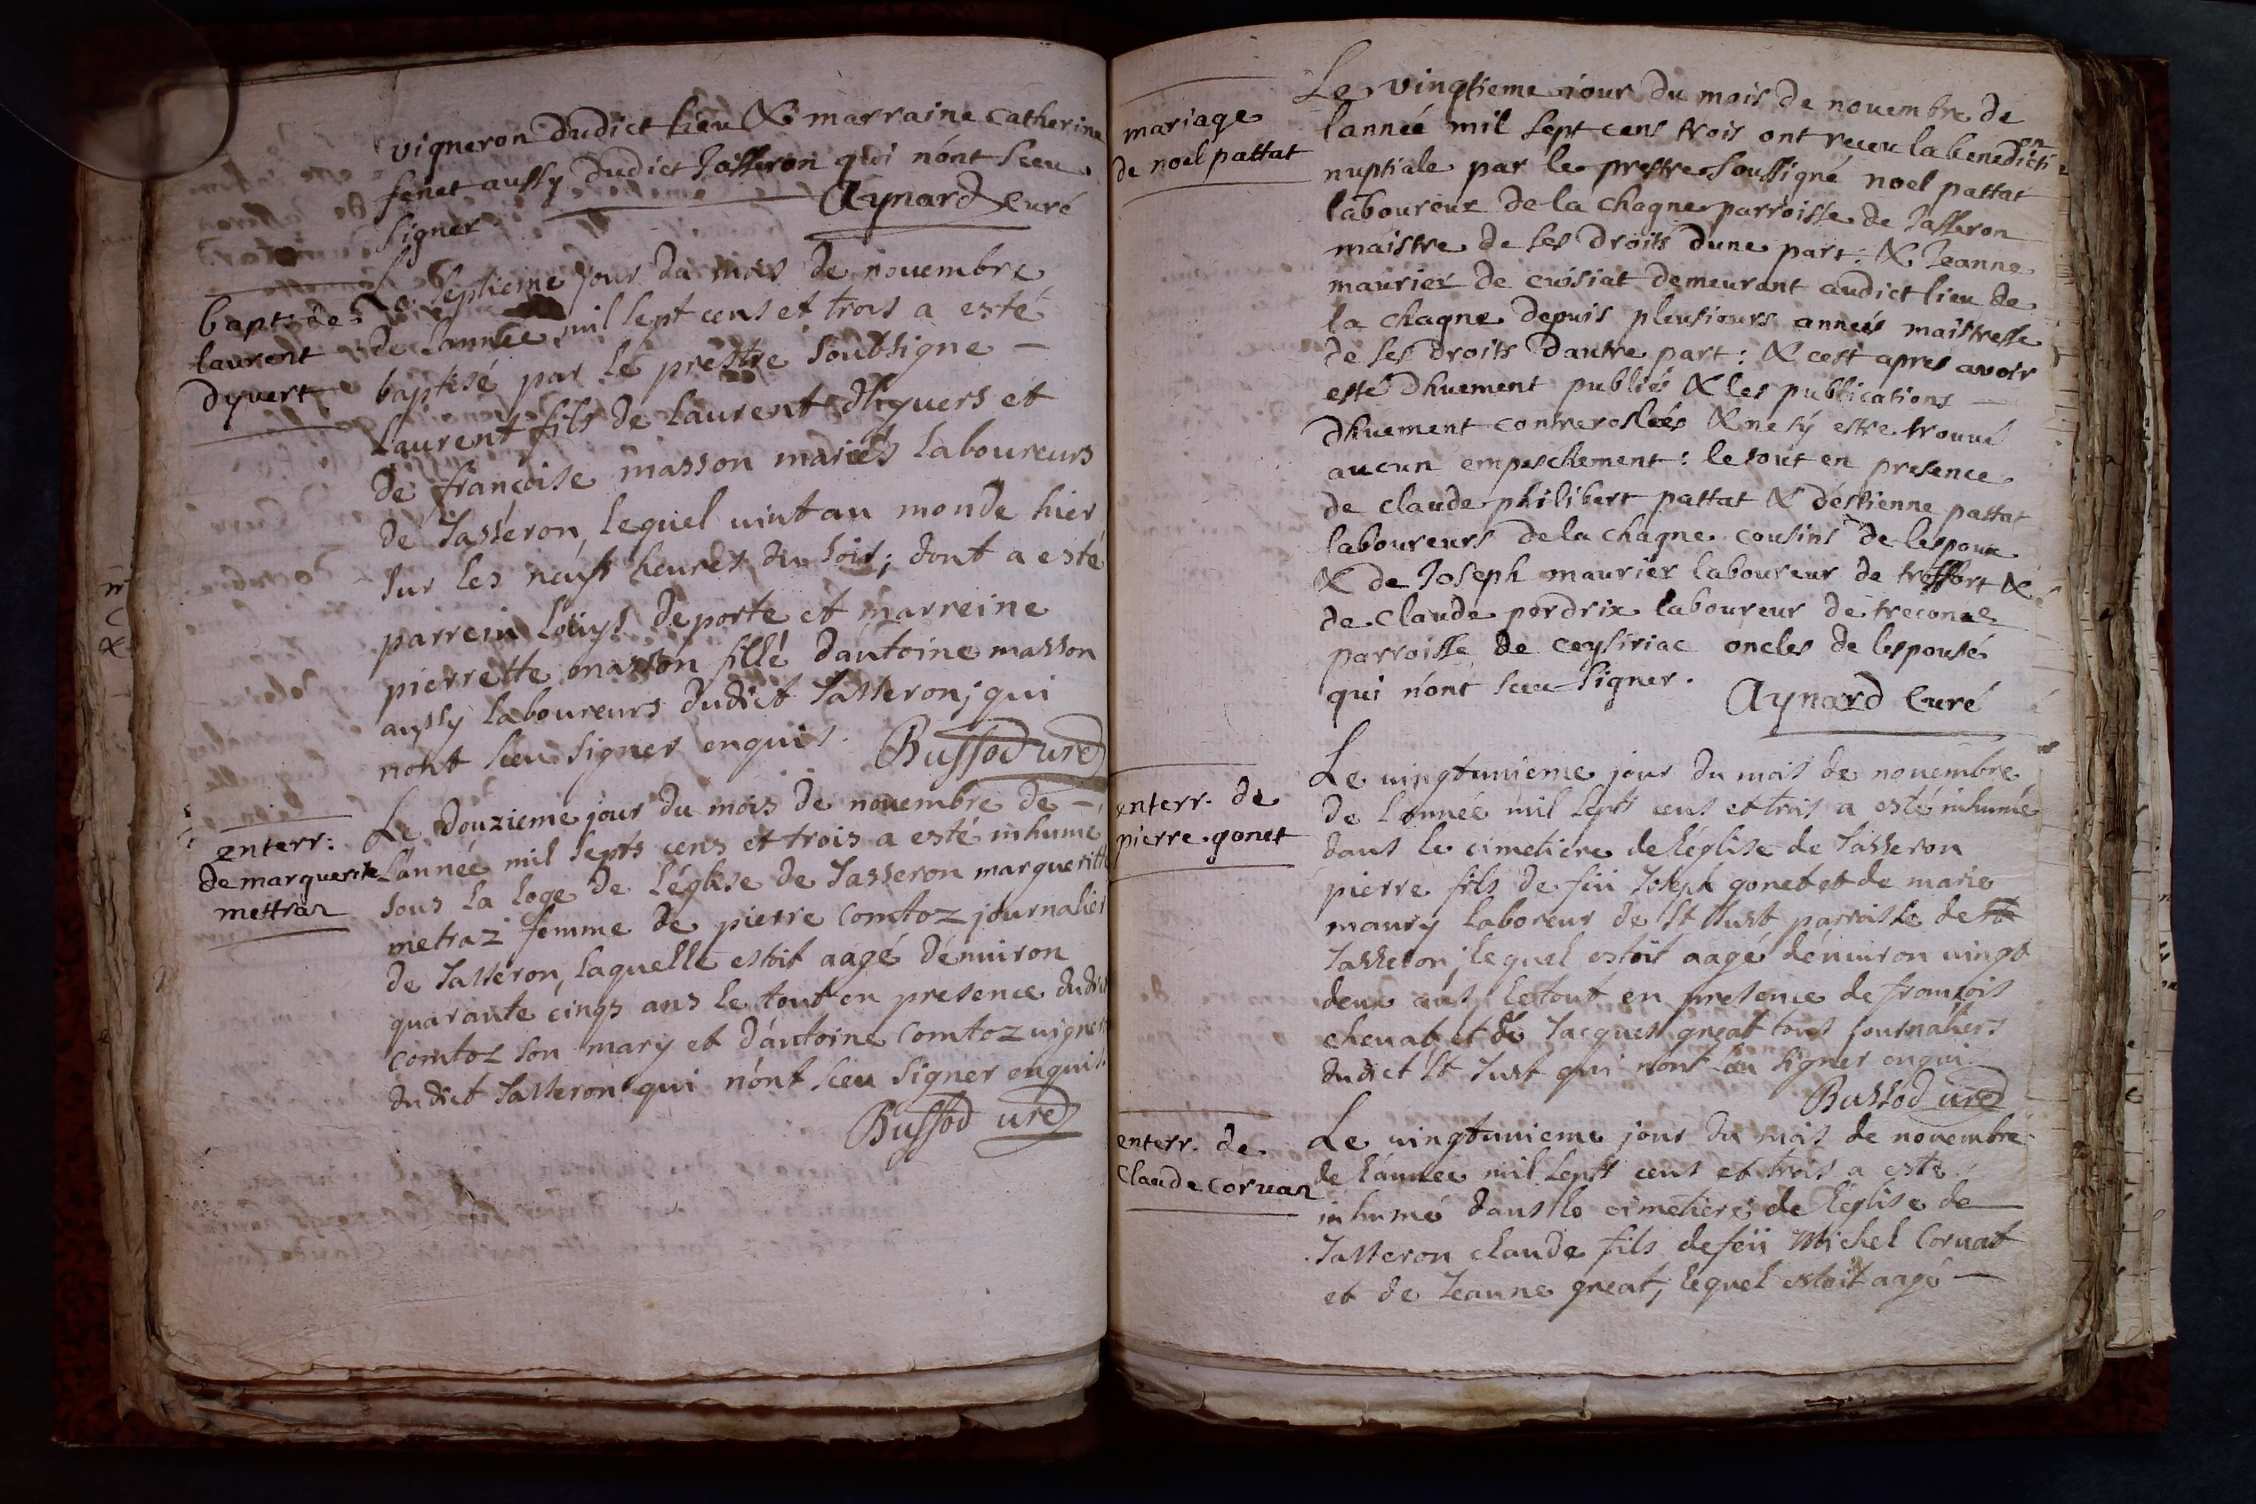 vigneron dudict lieu & marraine catherine
fenet aussy dudict Jasseron qui nónt sceu
signer Aynard Curé
bapt: de
laurent
dyvert
Le septieme jour du mois de nouembre
de lannee mil sept cens et trois a esté
baptisé par le prestre soubsigne –
laurent fils de laurent dhyuers et
de françoise masson mariés laboureurs
de Jasseron, lequel uint au monde hier
sur les neufs heures du soir; dont a esté
parrein Loüys deporte et marreine
pierrette masson fille dántoine masson
aussy laboureurs dudict Jasseron; qui
nont sceu signer enquis. Bussod ure
enterr:
de marguerite
mettraz
Le douzieme jour du mois de nouembre de –
lánnée mil septs cens et trois a esté inhume
sous la loge de léglise de Jasseron margueritte
metraz femme de pierre comtoz journalier
de Jasseron, laquelle estoit aagé dénuiron
quarante cinqs ans le tout en presence dudict
comtoz son mary et dántoine comtoz uigner
dudict Jasseron qui nónt sceu signer enquis.
Bussod ure
mariage
de noel pattat
Le vingtieme iour du mois de nouembre de
lanneé mil sept cens trois ont receu la benedicti on
nuptiale par le prestre soussigné noel pattat
laboureur de la chagne parroisse de Jasseron
maistre de ses droits dune part: & Jeanne
maurier de cuisiat demeurant audict lieu de
la chagne depuis pleusiours anneés maistresse
de ses droits dautre part: & cest apres avoir
esté dhuement publiés & les publications –
dhuement contrerolleés & ne sy estre trouué
aucun empeschement: le tout en presence
de claude philibert pattat & déstienne pattat
laboureurs de la chagne cousins de lespoux
& de Joseph maurier laboureur de treffort &
de claude perdrix laboureur de treconne
parroisse de ceysiriac oncles de lespousé
qui nónt sceu signer. Aynard Curé
enterr. de
pierre gonet
Le uingtunieme jour du mois de nouembre
de lánnée mil septs cens et trois a esté inhumé
dans le cimetiere de léglise de Jasseron
pierre fils de feu Joseph gonet et de marie
maury laboreur de St Just parroisse de
Jasseron; lequel estoit aagé dénuiron uingt
deux ans, le tout en presence de francois
cheuat et de Jacques great tous journaliers
dudict St Just qui nont sceu signer enquis
Bussod ure
enterr. de
Claude coruaz
Le uingtunieme jour du mois de nouembre
de lánnée mil septs cens et trois a este
inhumé dans le cimetiere de léglise de
Jasseron claude fils de feü Michel Coruat
et de Jeanne great, lequel estoit aagé –